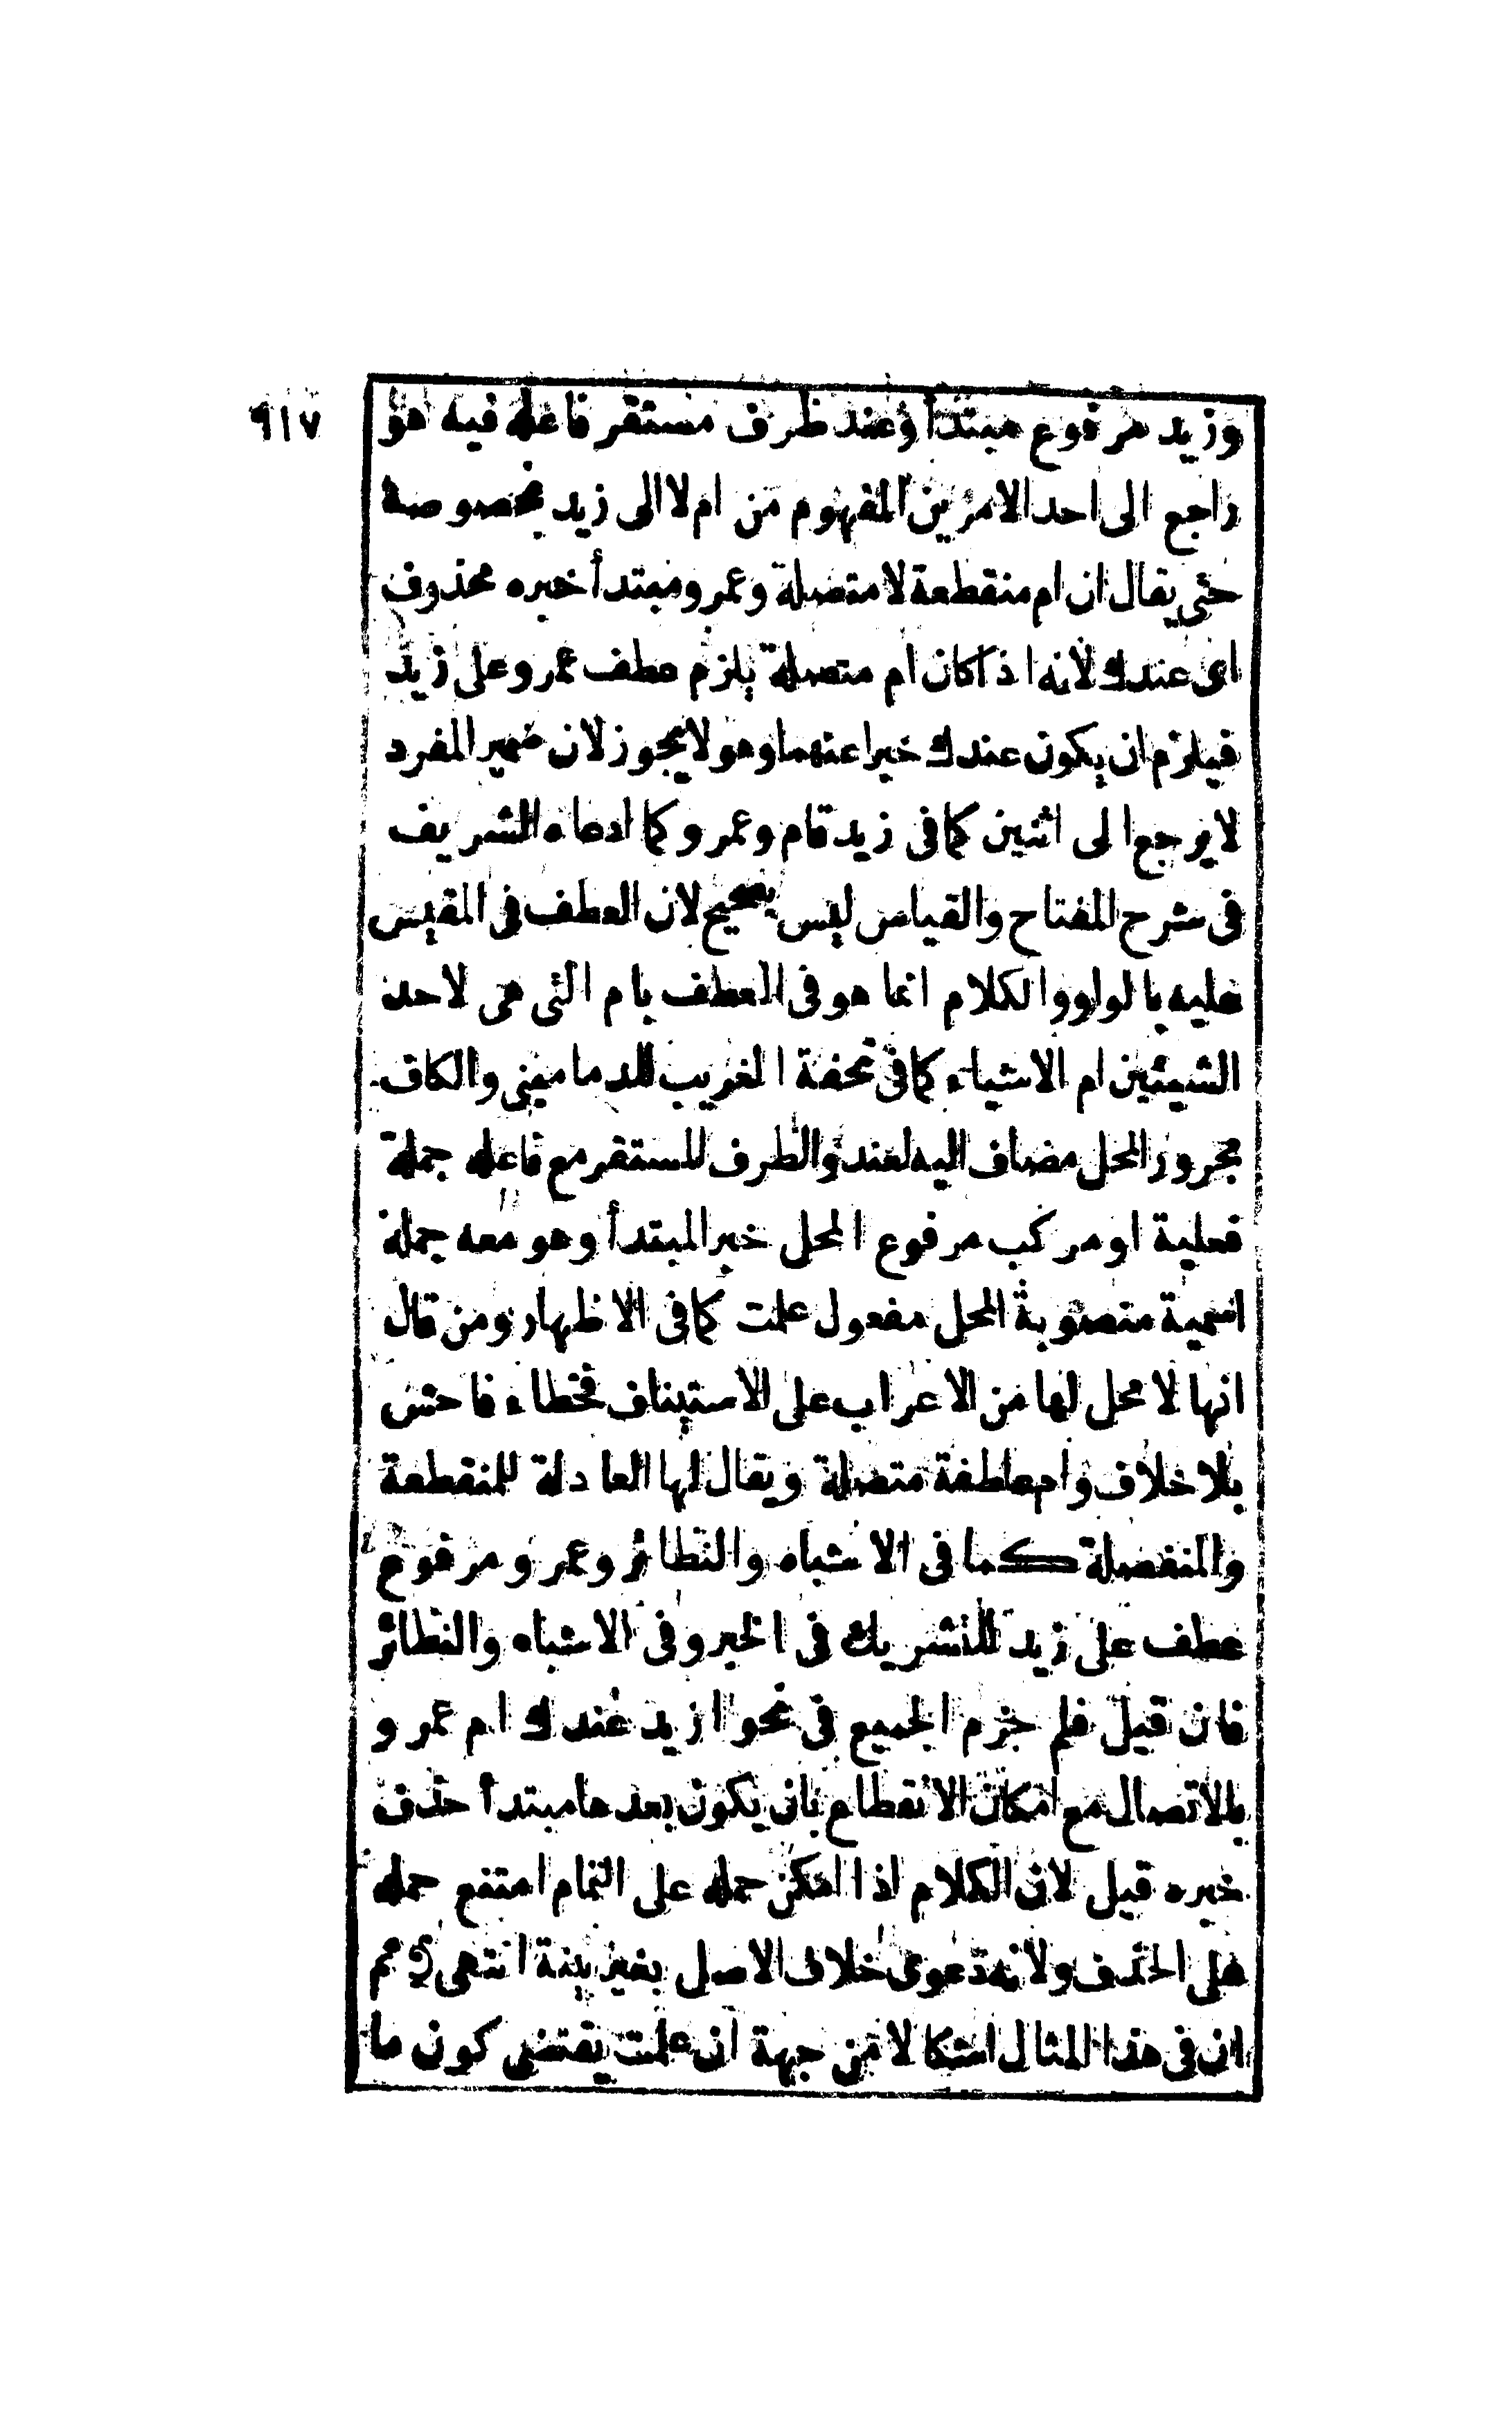 ٩١٧
وزيد مرفوع مبتدأ وعند ظرف مستقر فاعله فيه هو
راجع الى احد الامرين المفهوم من ام لا الى زيد بخصوصه
حتى يقال ان ام منقطعة لا متصلة وعمرو مبتدأ خبره محذوف
اى عندك لانه اذا كان ام متصلة يلزم عطف عمرو على زيد
فيلزم ان يكون عندك خبرا عنهما وهو لا يجوز لان ضمير المفرد
لا يرجع الى اثنين كما فى زيد قام وعمرو كما ادعاه الشريف
فى شرح المفتاح والقياس ليس بصحيح لان العطف فى المقيس
عليه بالواو والكلام انما هو فى العطف بام التى هى لاحد
الشيئين ام الاشياء كما فى تحفة الغريب للدمامينى والكاف
مجرور المحل مضاف اليه لعند والظرف المستقر مع فاعله جملة
فعلية او مركب مرفوع المحل خبر المبتدأ وهو معه جملة
اسمية منصوبة المحل مفعول علمت كما فى الاظهار ومن قال
انها لا محل لها من الاعراب على الاستيناف فخطاء فاحش
بلا خلاف وام عاطفة متصلة ويقال لها العادلة للمنقطعة
والمنفصلة كما فى الاشباه والنظائر وعمرو مرفوع
عطف على زيد للتشريك فى الخبر وفى الاشباه والنظائر
فان قيل فلم جزم الجميع فى نحو ازيد عندك ام عمرو
بالاتصال مع امكان الانقطاع بان يكون بعدها مبتدأ حذف
خبره قيل لان الكلام اذا امكن حمله على التمام امتنع حمله
على الحذف ولانه دعوى خلاف الاصل بغير بينة انتهى ثم
ان فى هذا المثال اشكالا من جهة ان علمت يقتضى كون ما